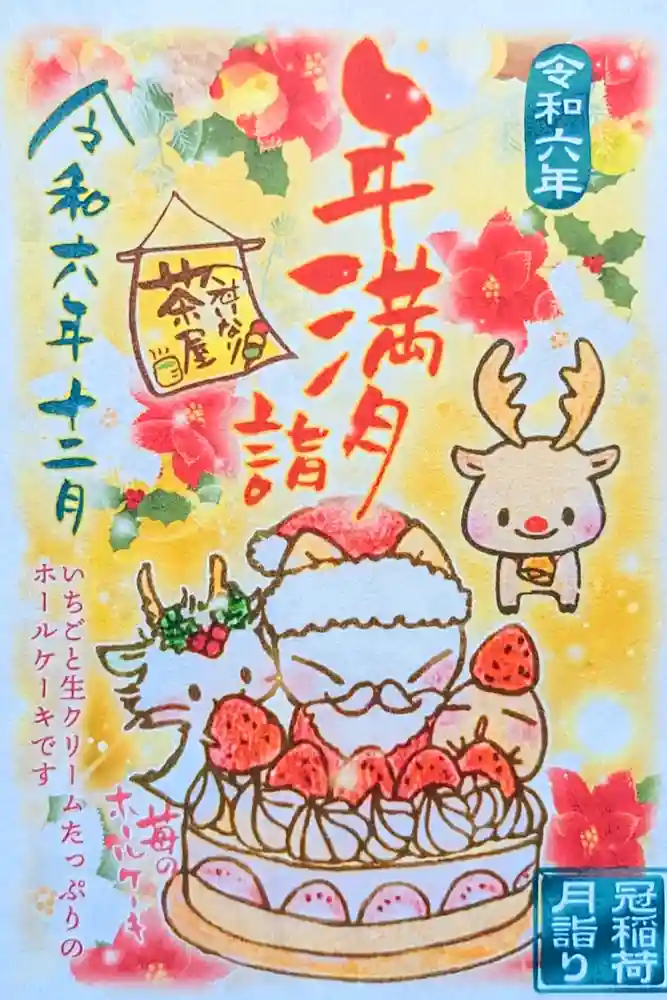 令和六年
年満月
詣
冠いなり
茶屋
令和六年十二月
いちごと生クリームたっぷりの
ホールケーキです
苺の
ホールケーキ
冠稲荷
月詣り